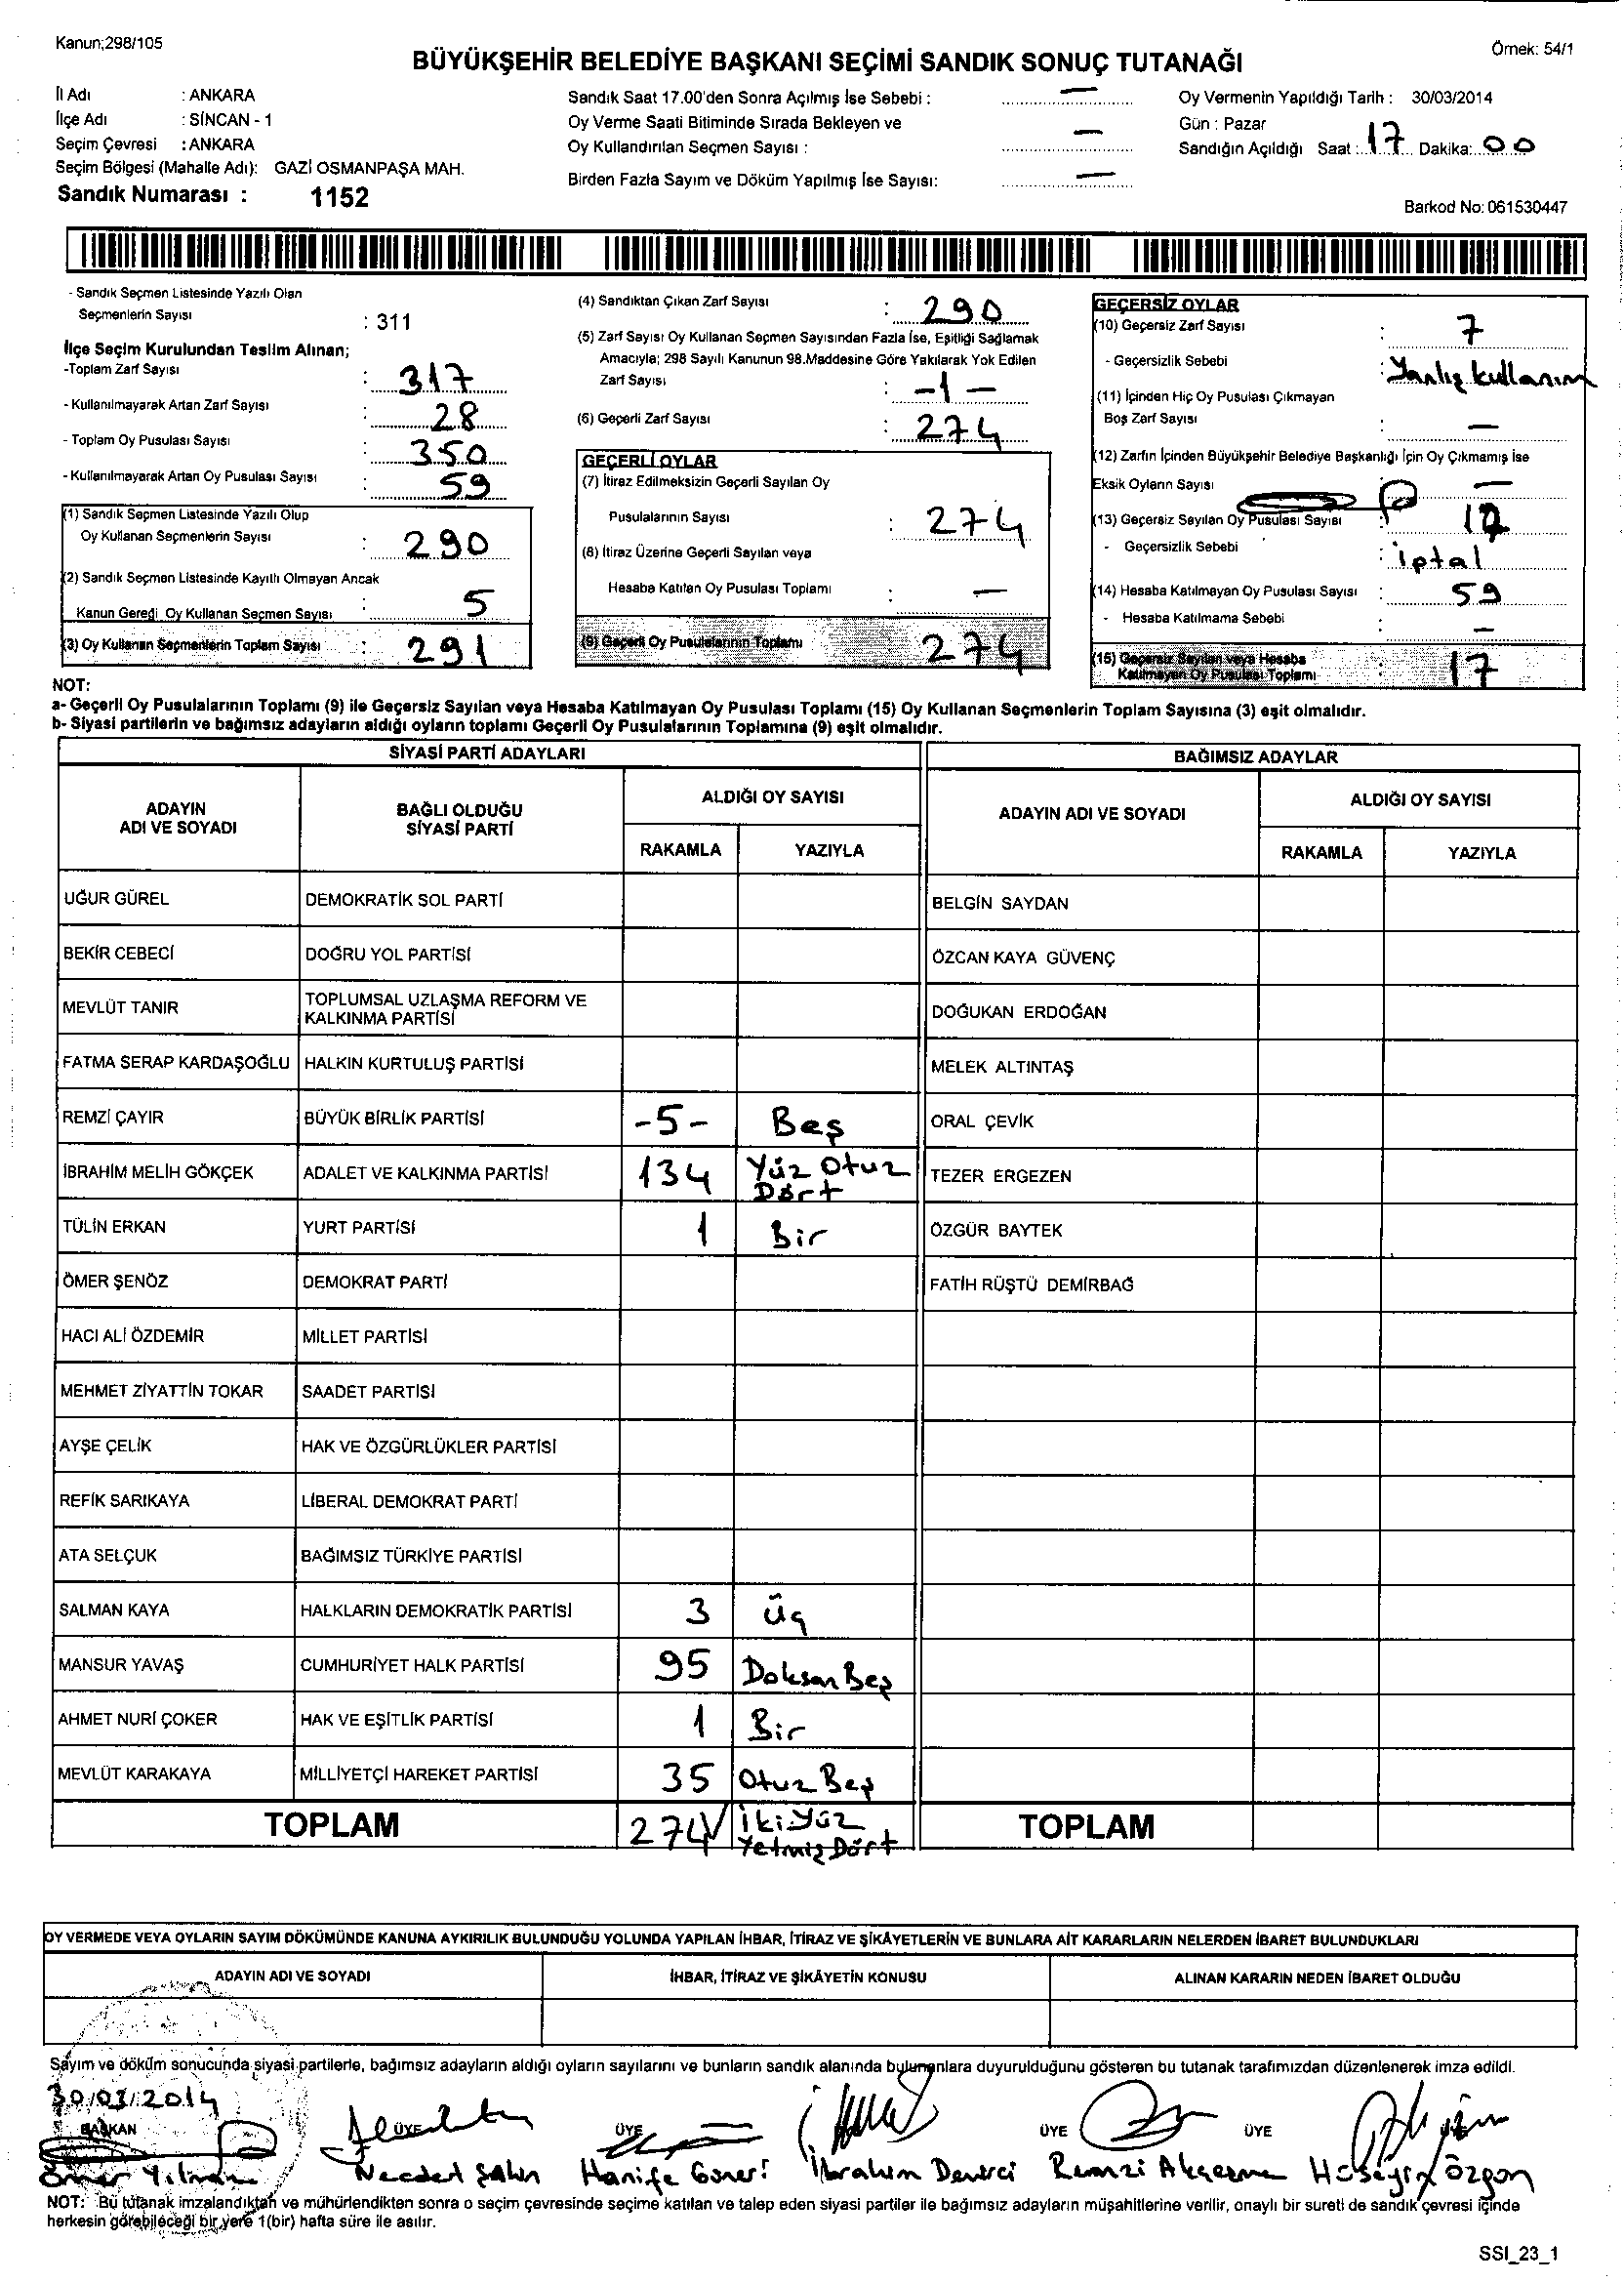 Kanun;298/105
Örnek: 54/1
BÜYÜKŞEHİR BELEDİYE BAŞKANI SEÇİMİ SANDIK SONUÇ TUTANAĞI
İl Adı : ANKARA
İlçe Adı : SİNCAN - 1
Seçim Çevresi : ANKARA
Seçim Bölgesi (Mahalle Adı): GAZİ OSMANPAŞA MAH.
Sandık Numarası : 1152
Sandık Saat 17.00'den Sonra Açılmış İse Sebebi : —
Oy Verme Saati Bitiminde Sırada Bekleyen ve
Oy Kullandırılan Seçmen Sayısı : —
Birden Fazla Sayım ve Döküm Yapılmış İse Sayısı: —
Oy Vermenin Yapıldığı Tarih : 30/03/2014
Gün : Pazar
Sandığın Açıldığı Saat : 17 Dakika: 00
Barkod No: 061530447
- Sandık Seçmen Listesinde Yazılı Olan
Seçmenlerin Sayısı : 311
İlçe Seçim Kurulundan Teslim Alınan;
-Toplam Zarf Sayısı : 317
- Kullanılmayarak Artan Zarf Sayısı : 28
- Toplam Oy Pusulası Sayısı : 350
- Kullanılmayarak Artan Oy Pusulası Sayısı : 59
(1) Sandık Seçmen Listesinde Yazılı Olup
Oy Kullanan Seçmenlerin Sayısı : 290
(2) Sandık Seçmen Listesinde Kayıtlı Olmayan Ancak
Kanun Gereği Oy Kullanan Seçmen Sayısı : 5
(3) Oy Kullanan Seçmenlerin Toplam Sayısı : 291
(4) Sandıktan Çıkan Zarf Sayısı : 290
(5) Zarf Sayısı Oy Kullanan Seçmen Sayısından Fazla İse, Eşitliği Sağlamak
Amacıyla; 298 Sayılı Kanunun 98.Maddesine Göre Yakılarak Yok Edilen
Zarf Sayısı : -1-
(6) Geçerli Zarf Sayısı : 274
GEÇERLİ OYLAR
(7) İtiraz Edilmeksizin Geçerli Sayılan Oy
Pusulalarının Sayısı : 274
(8) İtiraz Üzerine Geçerli Sayılan veya
Hesaba Katılan Oy Pusulası Toplamı : —
(9) Geçerli Oy Pusulalarının Toplamı 274
GEÇERSİZ OYLAR
(10) Geçersiz Zarf Sayısı : 7
- Geçersizlik Sebebi : Yanlış kullanım
(11) İçinden Hiç Oy Pusulası Çıkmayan
Boş Zarf Sayısı : —
(12) Zarfın İçinden Büyükşehir Belediye Başkanlığı İçin Oy Çıkmamış İse
Eksik Oyların Sayısı —
(13) Geçersiz Sayılan Oy Pusulası Sayısı : 17
- Geçersizlik Sebebi : iptal
(14) Hesaba Katılmayan Oy Pusulası Sayısı : 59
- Hesaba Katılmama Sebebi : —
(15) Geçersiz Sayılan veya Hesaba
Katılmayan Oy Pusulası Toplamı : 17
NOT:
a- Geçerli Oy Pusulalarının Toplamı (9) ile Geçersiz Sayılan veya Hesaba Katılmayan Oy Pusulası Toplamı (15) Oy Kullanan Seçmenlerin Toplam Sayısına (3) eşit olmalıdır.
b- Siyasi partilerin ve bağımsız adayların aldığı oyların toplamı Geçerli Oy Pusulalarının Toplamına (9) eşit olmalıdır.
SİYASİ PARTİ ADAYLARI
BAĞIMSIZ ADAYLAR
ADAYIN ADI VE SOYADI
BAĞLI OLDUĞU SİYASİ PARTİ
ALDIĞI OY SAYISI
RAKAMLA YAZIYLA
ADAYIN ADI VE SOYADI
ALDIĞI OY SAYISI
RAKAMLA YAZIYLA
UĞUR GÜREL DEMOKRATİK SOL PARTİ BELGİN SAYDAN
BEKİR CEBECİ DOĞRU YOL PARTİSİ ÖZCAN KAYA GÜVENÇ
MEVLÜT TANIR TOPLUMSAL UZLAŞMA REFORM VE KALKINMA PARTİSİ DOĞUKAN ERDOĞAN
FATMA SERAP KARDAŞOĞLU HALKIN KURTULUŞ PARTİSİ MELEK ALTINTAŞ
REMZİ ÇAYIR BÜYÜK BİRLİK PARTİSİ -5- Beş ORAL ÇEVİK
İBRAHİM MELİH GÖKÇEK ADALET VE KALKINMA PARTİSİ 134 Yüz Otuz Dört TEZER ERGEZEN
TÜLİN ERKAN YURT PARTİSİ 1 Bir ÖZGÜR BAYTEK
ÖMER ŞENÖZ DEMOKRAT PARTİ FATİH RÜŞTÜ DEMİRBAĞ
HACI ALİ ÖZDEMİR MİLLET PARTİSİ
MEHMET ZİYATTİN TOKAR SAADET PARTİSİ
AYŞE ÇELİK HAK VE ÖZGÜRLÜKLER PARTİSİ
REFİK SARIKAYA LİBERAL DEMOKRAT PARTİ
ATA SELÇUK BAĞIMSIZ TÜRKİYE PARTİSİ
SALMAN KAYA HALKLARIN DEMOKRATİK PARTİSİ 3 Üç
MANSUR YAVAŞ CUMHURİYET HALK PARTİSİ 95 Doksan Beş
AHMET NURİ ÇOKER HAK VE EŞİTLİK PARTİSİ 1 Bir
MEVLÜT KARAKAYA MİLLİYETÇİ HAREKET PARTİSİ 35 Otuz Beş
TOPLAM 274 İkiyüz Yetmiş Dört TOPLAM
OY VERMEDE VEYA OYLARIN SAYIM DÖKÜMÜNDE KANUNA AYKIRILIK BULUNDUĞU YOLUNDA YAPILAN İHBAR, İTİRAZ VE ŞİKÂYETLERİN VE BUNLARA AİT KARARLARIN NELERDEN İBARET BULUNDUKLARI
ADAYIN ADI VE SOYADI İHBAR, İTİRAZ VE ŞİKÂYETİN KONUSU ALINAN KARARIN NEDEN İBARET OLDUĞU
Sayım ve döküm sonucunda siyasi partilerle, bağımsız adayların aldığı oyların sayılarını ve bunların sandık alanında bulunanlara duyurulduğunu gösteren bu tutanak tarafımızdan düzenlenerek imza edildi.
30/03/2014
BAŞKAN ÜYE ÜYE ÜYE ÜYE
Ömer Yılmaz Necdet Şahin Hanife Güneri İbrahim Demirci Remzi Hüseyin Özgan
NOT: Bu tutanak imzalandıktan ve mühürlendikten sonra o seçim çevresinde seçime katılan ve talep eden siyasi partiler ile bağımsız adayların müşahitlerine verilir, onaylı bir sureti de sandık çevresi içinde
herkesin görebileceği bir yere 1(bir) hafta süre ile asılır.
SSI_23_1